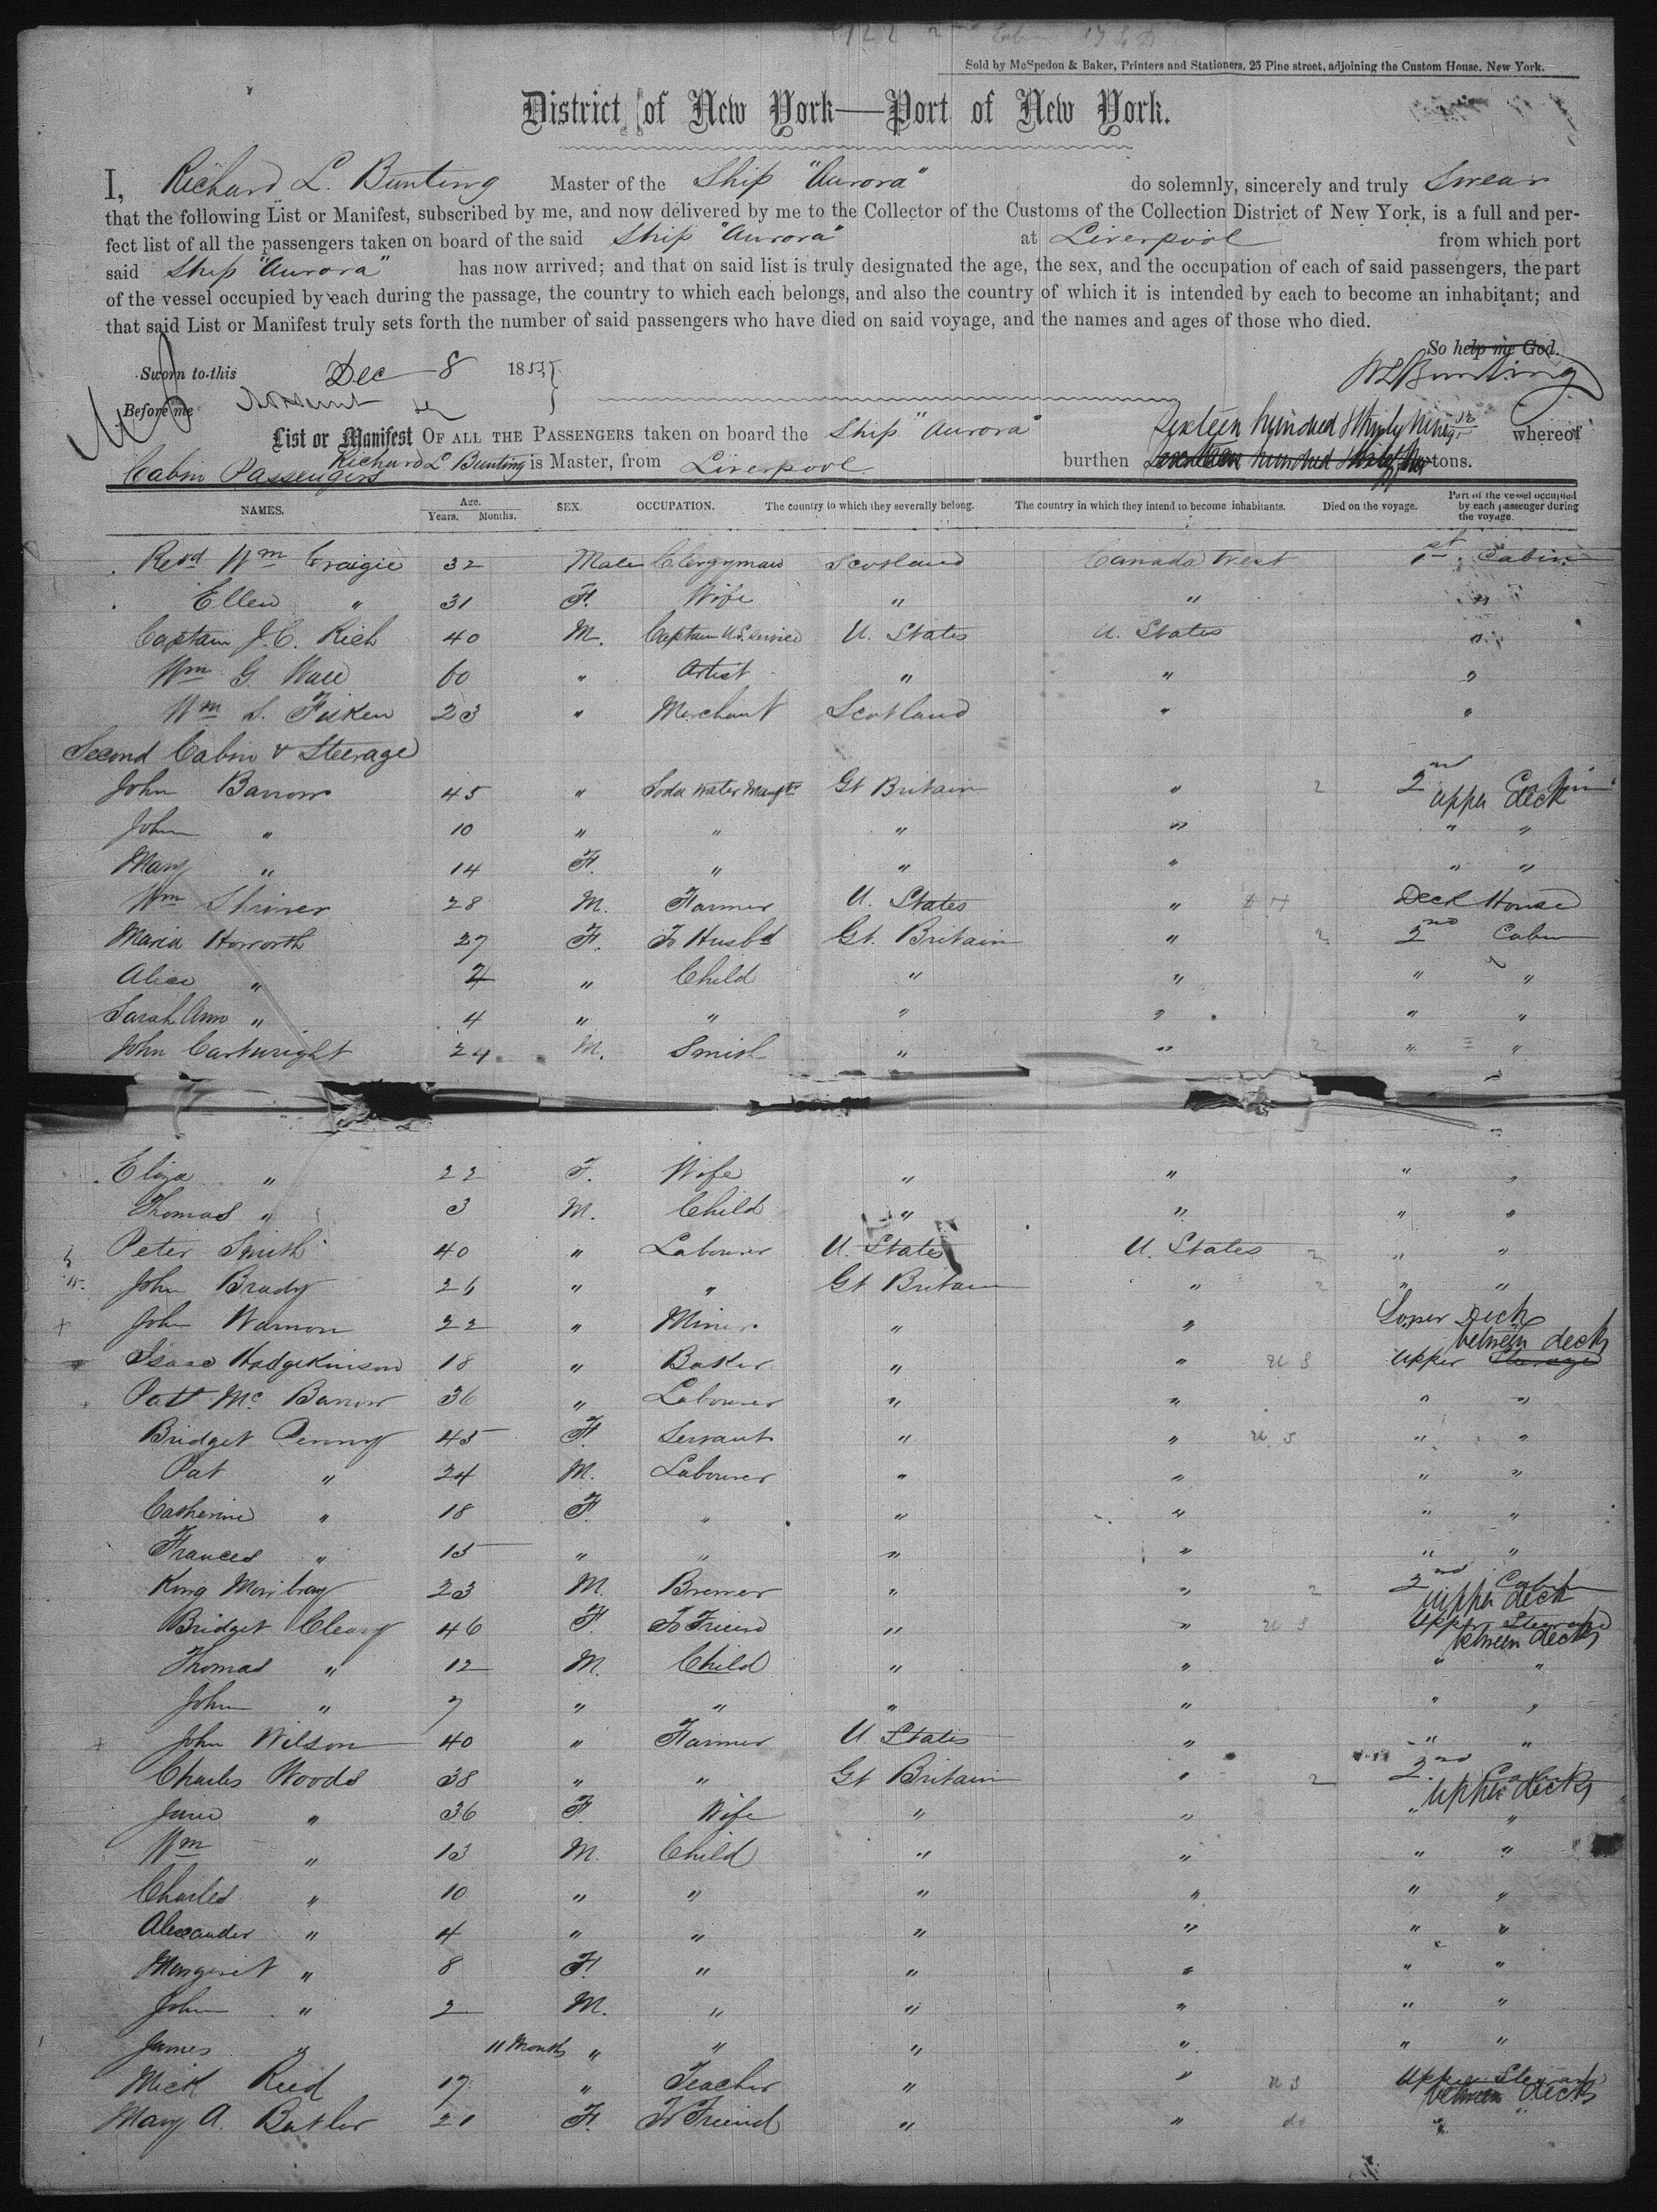 Sold by McSpedon & Baker, Printers and Stationers, 25 Pine street, adjoining the Custom House. New York.
District of New York—Port of New York.
I, Richard L. Bunting Master of the Ship "Aurora" do solemnly, sincerely and truly Swear
that the following List or Manifest, subscribed by me, and now delivered by me to the Collector of the Customs of the Collection District of New York, is a full and per-
fect list of all the passengers taken on board of the said Ship "Aurora" at Liverpool from which port
said Ship "Aurora" has now arrived; and that on said list is truly designated the age, the sex, and the occupation of each of said passengers, the part
of the vessel occupied by each during the passage, the country to which each belongs, and also the country of which it is intended by each to become an inhabitant; and
that said List or Manifest truly sets forth the number of said passengers who have died on said voyage, and the names and ages of those who died.
So help me God.
Sworn to this Dec 8 185
R L Bunting
Before me
List or Manifest OF ALL THE PASSENGERS taken on board the Ship "Aurora" whereof
Richard L Bunting is Master, from Liverpool burthen Sixteen hundred & thirty nine tons.
Cabin Passengers
NAMES. Age. Years. Months. SEX. OCCUPATION. The country to which they severally belong. The country in which they intend to become inhabitants. Died on the voyage. Part of the vessel occupied by each passenger during the voyage
Revd Wm Craigie 32 Male Clergyman Scotland Canada West 1st Cabin
Ellen " 31 F. Wife " " "
Captain J. C. Rich 40 M. Captain U.S. service U. States U. States "
Wm G. Wall 60 " Artist " " "
Wm S. Fisken 23 " Merchant Scotland " "
Second Cabin & Steerage
John Barrow 45 " Soda Water Manftr Gt Britain " 2 2nd Cabin upper deck
John " 10 " " " " " "
Mary " 14 F. " " " " "
Wm Shriner 28 M. Farmer U. States " D H Deck House
Maria Horrorth 27 F. To Husbd Gt. Britain " 2 2nd Cabin
Alice " " Child " " " "
Sarah Ann " 4 " " " " " "
John Cartwright 24 M. Smith " " 2 " "
Eliza " 22 F. Wife " " " "
Thomas " 3 M. Child " " " "
Peter Smith 40 " Labourer U. States U. States 2 " "
John Brady 26 " " Gt Britain " 2 " "
John Warmon 22 " Miner " " Lower Deck
Isaac Hodgekinson 18 " Baker " " U S Upper Steerage between decks
Patt Mc Barron 36 " Labourer " " " "
Bridget Penny 45 F. Servant " " U. S " "
Pat " 24 M. Labourer " " " "
Catherine " 18 F. " " " " "
Frances " 15 " " " " " "
King Mowbray 23 M. Brewer " " 2 2nd Cabin upper deck
Bridget Cleary 46 F. To Friend " " U S Upper Steerage between decks
Thomas " 12 M. Child " " " "
John " 7 " " " " " "
John Wilson 40 " Farmer U. States " " "
Charles Woods 38 " " Gt Britain " 2 2nd Cabin upper decks
Jane " 36 F. Wife " " " "
Wm " 13 M. Child " " " "
Charles " 10 " " " " " "
Alexander " 4 " " " " " "
Margeret " 8 F. " " " " "
John " 2 M. " " " " "
James " 11 Months " " " " " "
Mick Reed 17 " Teacher " " U S Upper Steerage between decks
Mary A. Butler 21 F. To Friend " " do " "